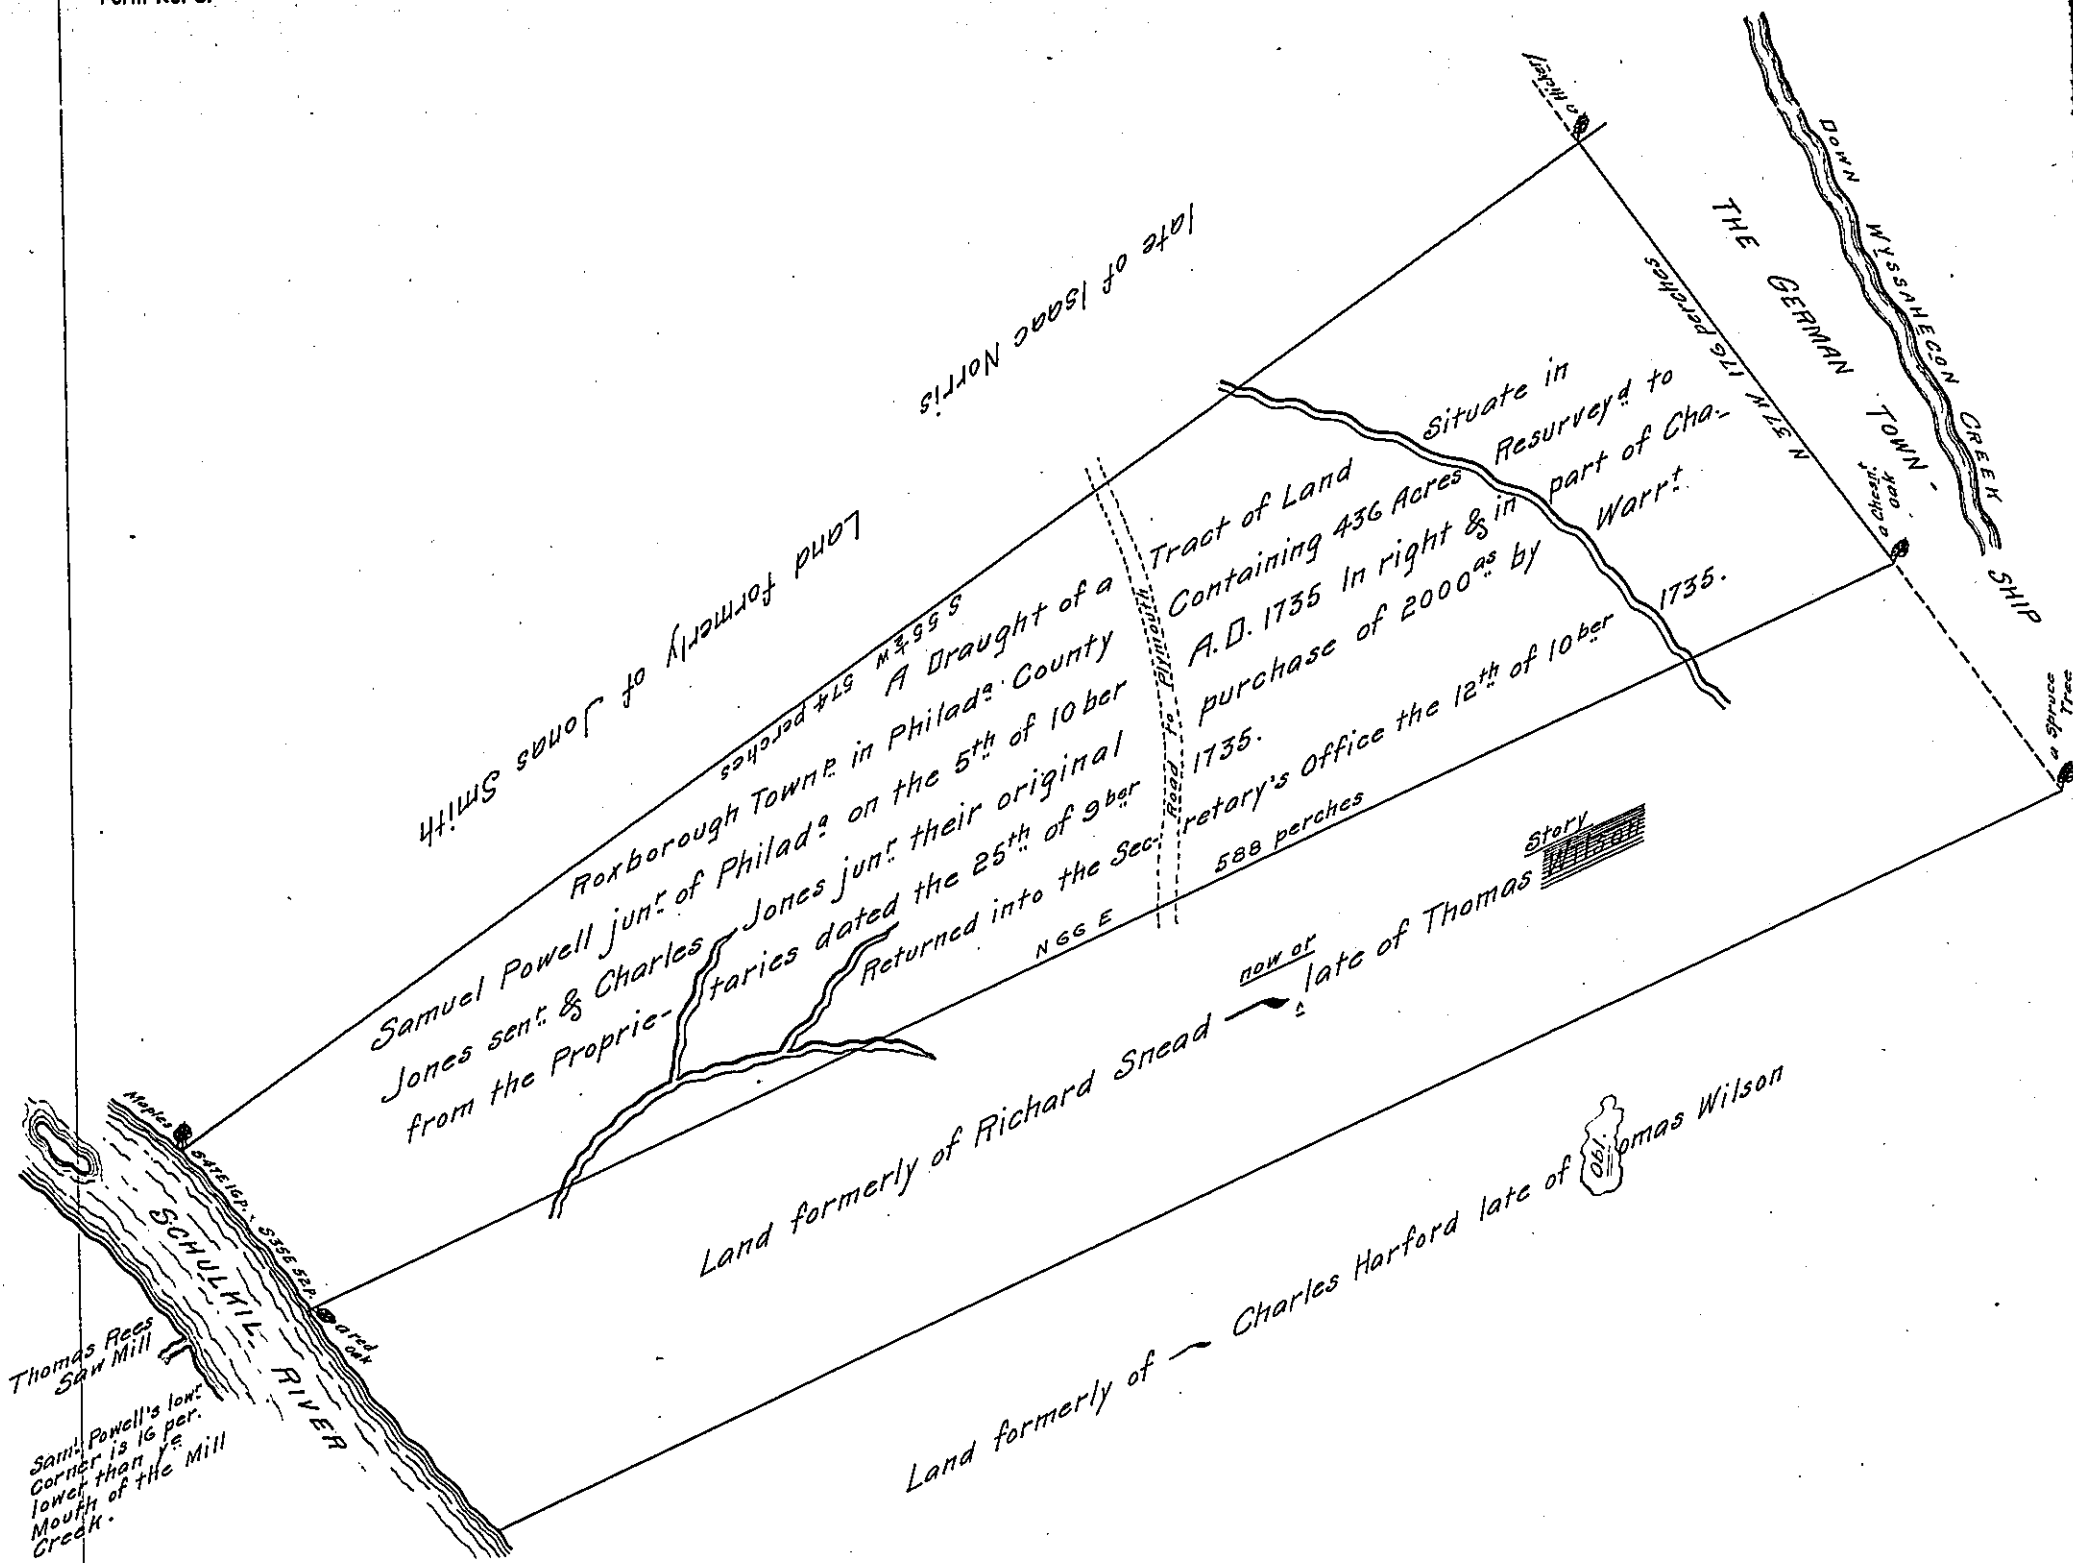 late of Isaac Norris
Land formerly of Jonas Smith
a Hickery
DOWN WYSSAHECON CREEK
THE GERMAN TOWN-
SHIP
N 37 W 176 perches
a Chesnt.
oak
a Spruce
Tree
S 55½ W 574 perches
A Draught of a Tract of Land Situate in
Roxborough Townp. in Philada. County Containing 436 Acres Resurveyd to
Samuel Powell junr. of Philada. on the 5th of 10ber A.D. 1735 In right & in part of Cha-
Jones senr. & Charles Jones junr. their original purchase of 2000as by Warrt.
from the Proprie- taries dated the 25th of 9ber 1735.
Returned into the Sec- retary's Office the 12th of 10ber 1735.
Road to Plymouth
N 66 E 588 perches
Story
now or
Land formerly of Richard Snead late of Thomas Wilson
Land formerly of Charles Harford late of Obl. omas Wilson
Maples
S47E 16p. S35E 52p.
a red
oak
SCHULKIL RIVER
Thomas Rees
Saw Mill
Saml. Powell's lowr.
Corner is 16 per.
lower than ye
Mouth of the Mill
Creek.